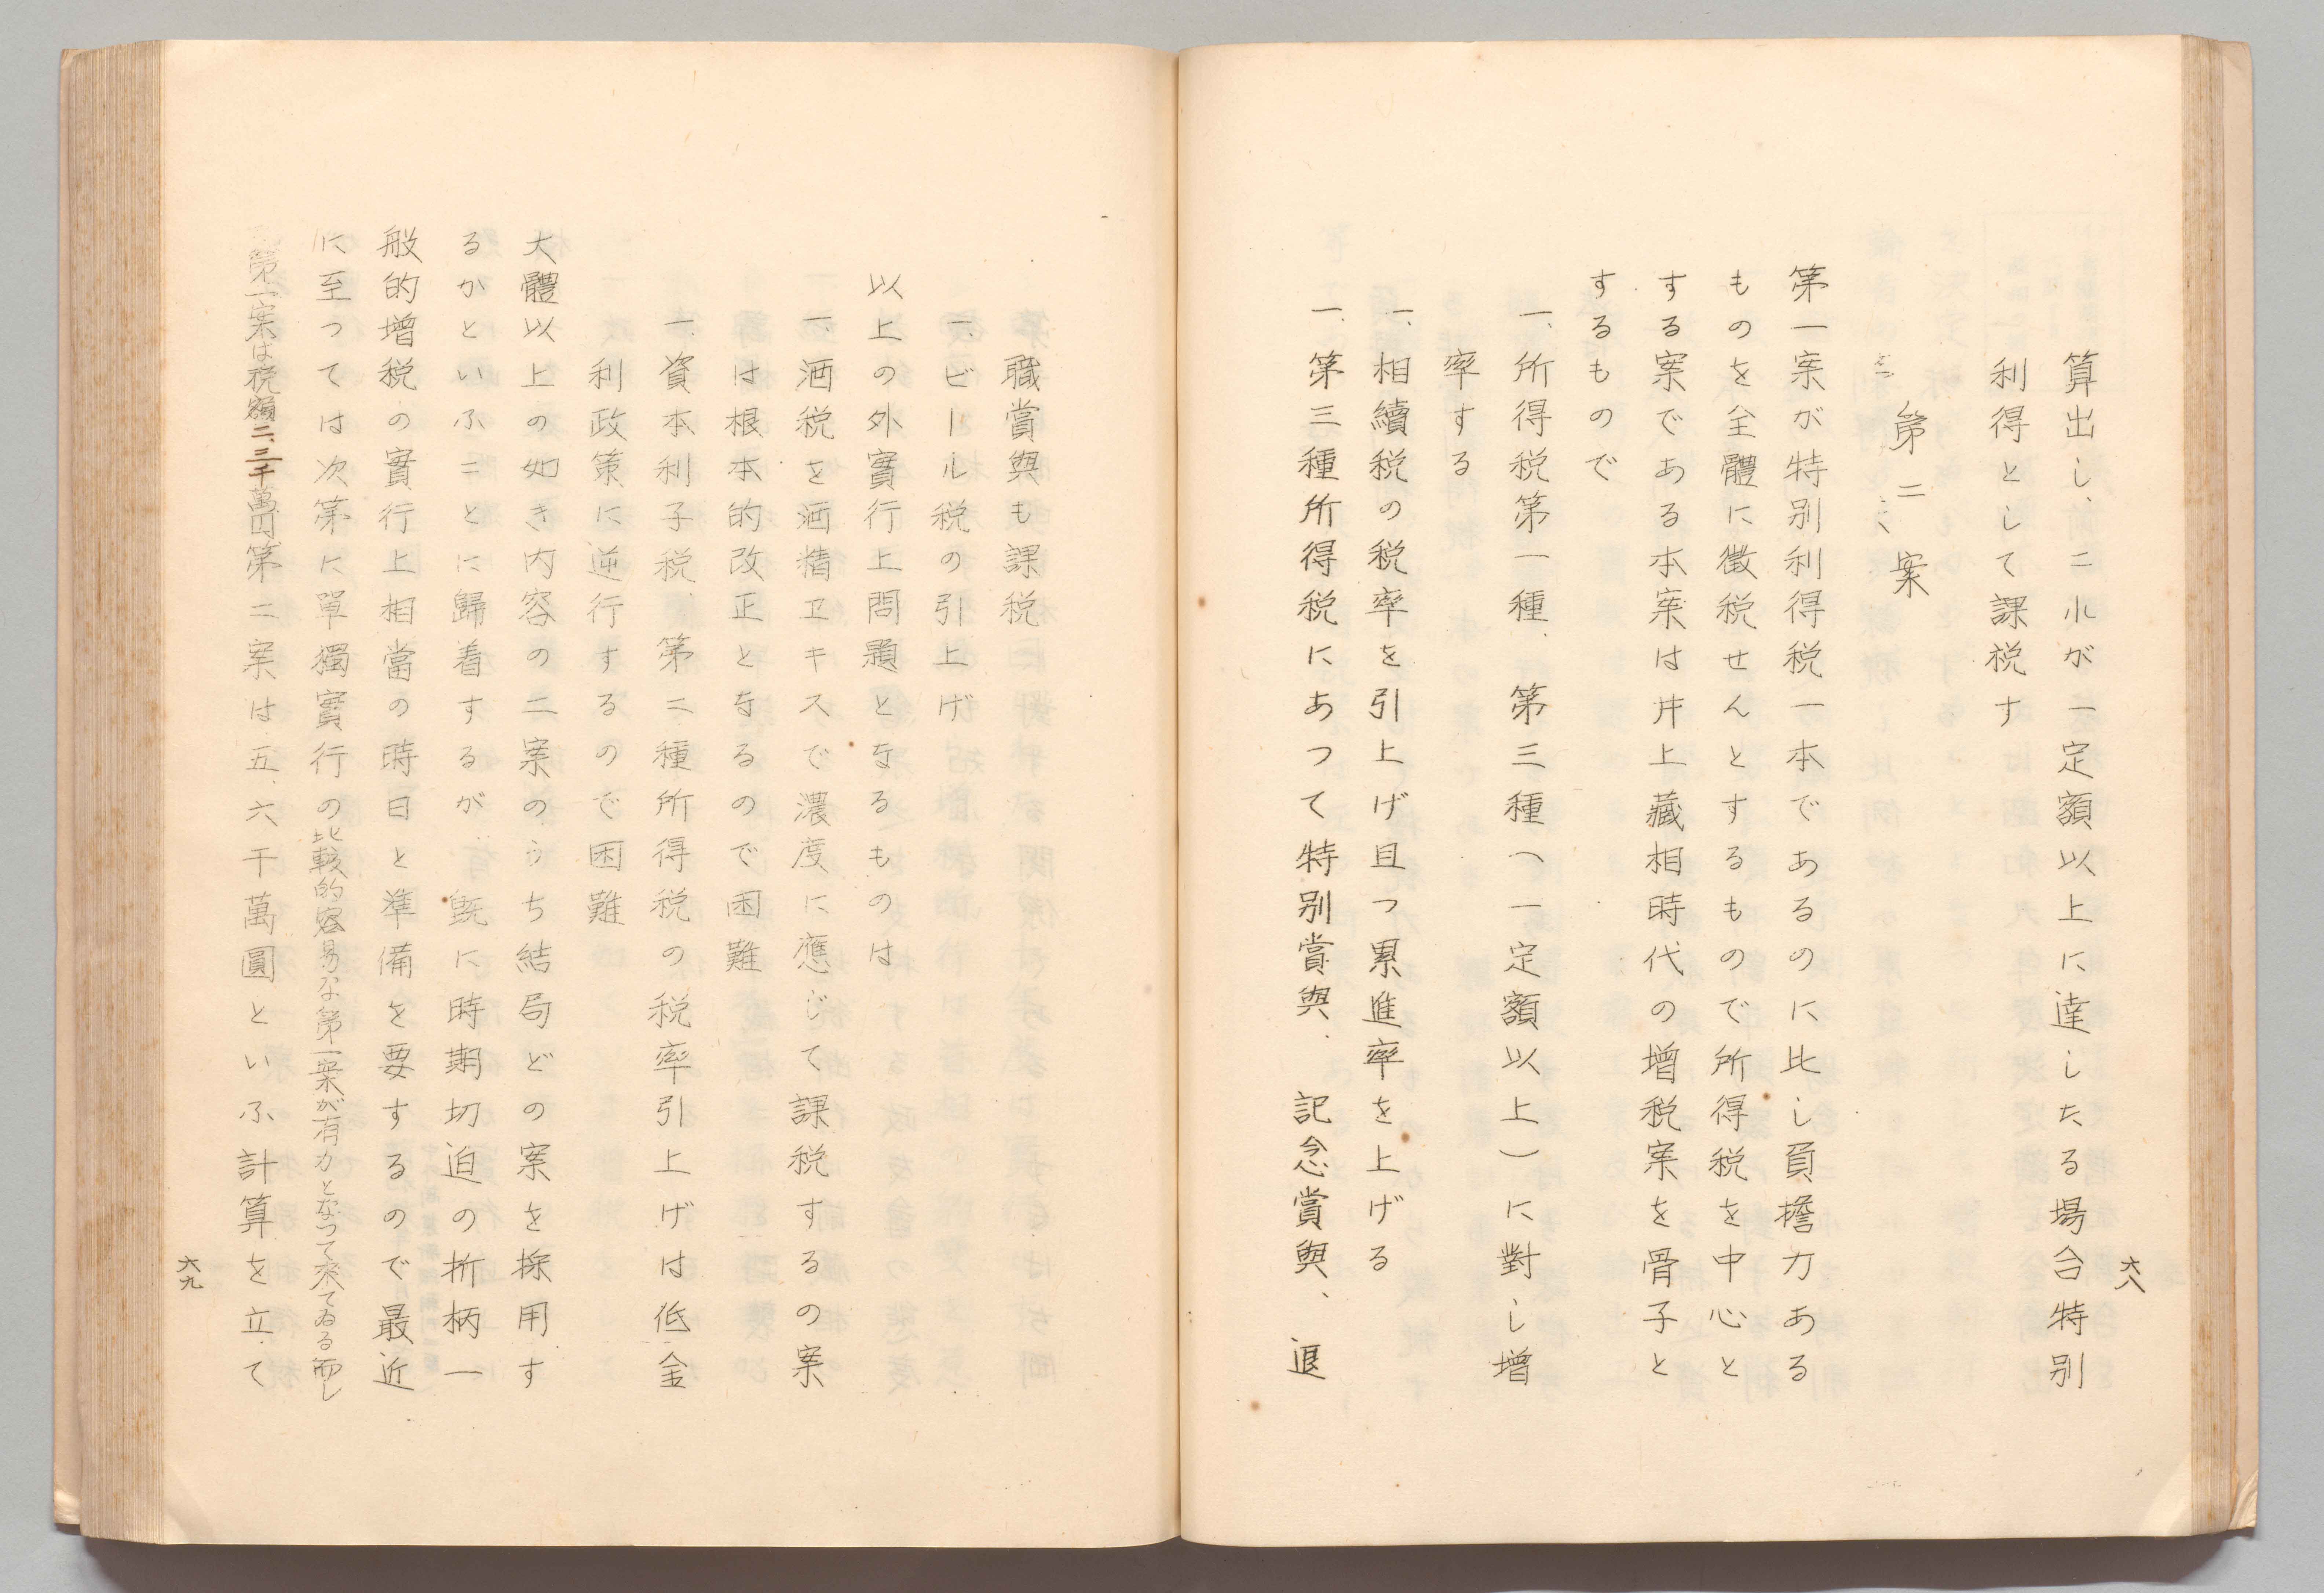 六八
算出し、コレが一定額以上に達したる場合特別
利得として課税す
第二案
第一案が特別利得税一本であるのに比し負擔力ある
ものを全體に徴税せんとするもので所得税を中心と
する案である本案は井上藏相時代の増税案を骨子と
するもので
一、所得税第一種、第三種(一定額以上)に對し増
率する
一、相續税の税率を引上げ且つ累進率を上げる
一、第三種所得税にあつて特別賞與、記念賞與、退
職賞與も課税
一、ビール税の引上げ
以上の外實行上問題となるものは
一、酒税を酒精エキスで濃度に應じて課税するの案
は根本的改正となるので困難
一、資本利子税、第二種所得税の税率引上げは低金
利政策に逆行するので困難
大體以上の如き内容の二案のうち結局どの案を採用す
るかといふことに歸着するが、既に時期切迫の折柄一
般的増税の實行上相當の時日と準備を要するので最近
に至つては次第に單獨實行の比較的容易な第一案が有力となつて來てゐる而し
第一案は税額二、三千萬円第二案は五、六千萬圓といふ計算を立て
六九